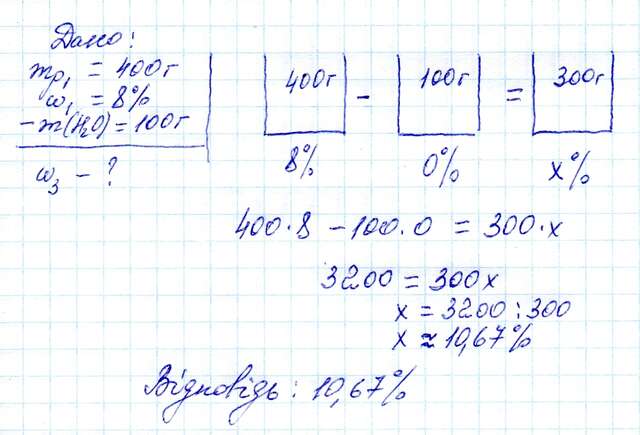 Дано:
mр₁ = 400г
ω₁ = 8%
–m(H₂O) = 100г
ω₃ – ?
400г – 100г = 300г
8% 0% x%
400·8 – 100·0 = 300·x
3200 = 300x
x = 3200 : 300
x ≈ 10,67%
Відповідь: 10,67%